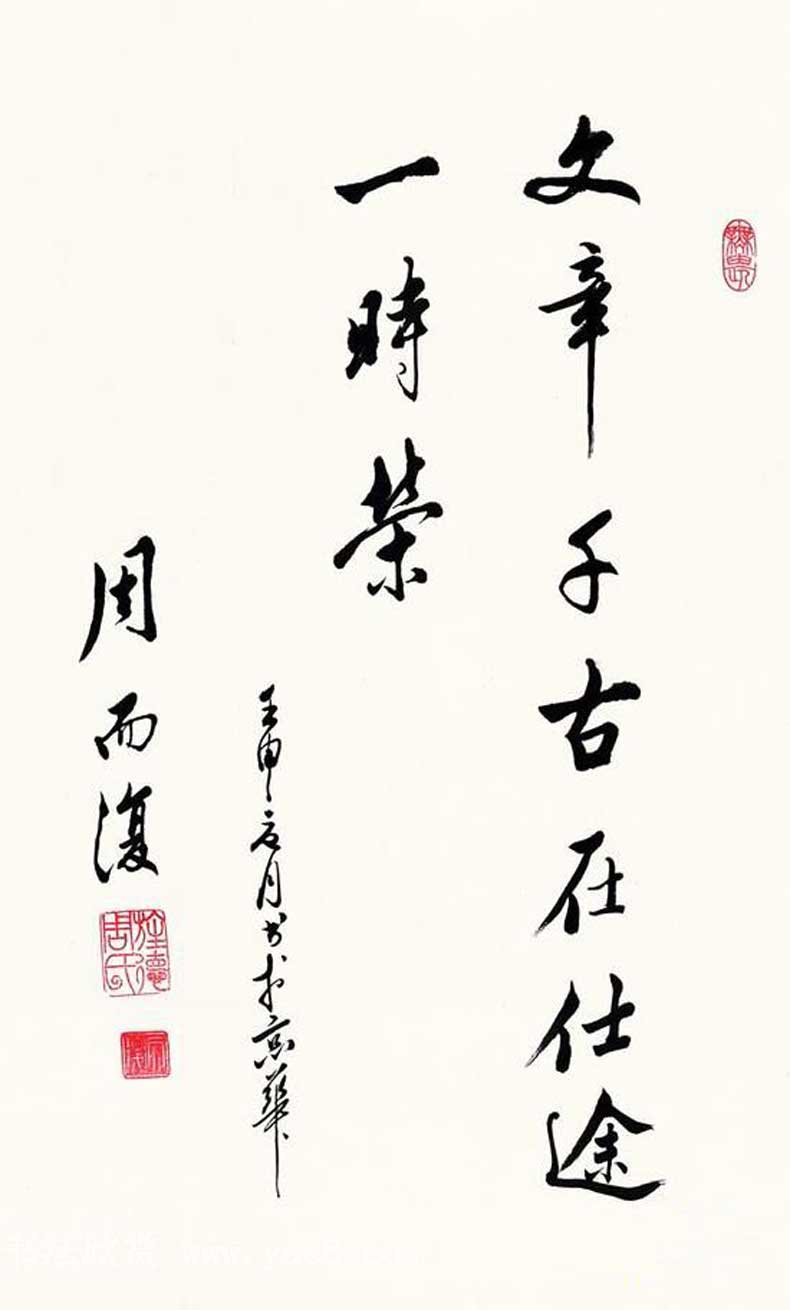 文章千古在仕途
一時榮
壬申之月书于京華
周而復